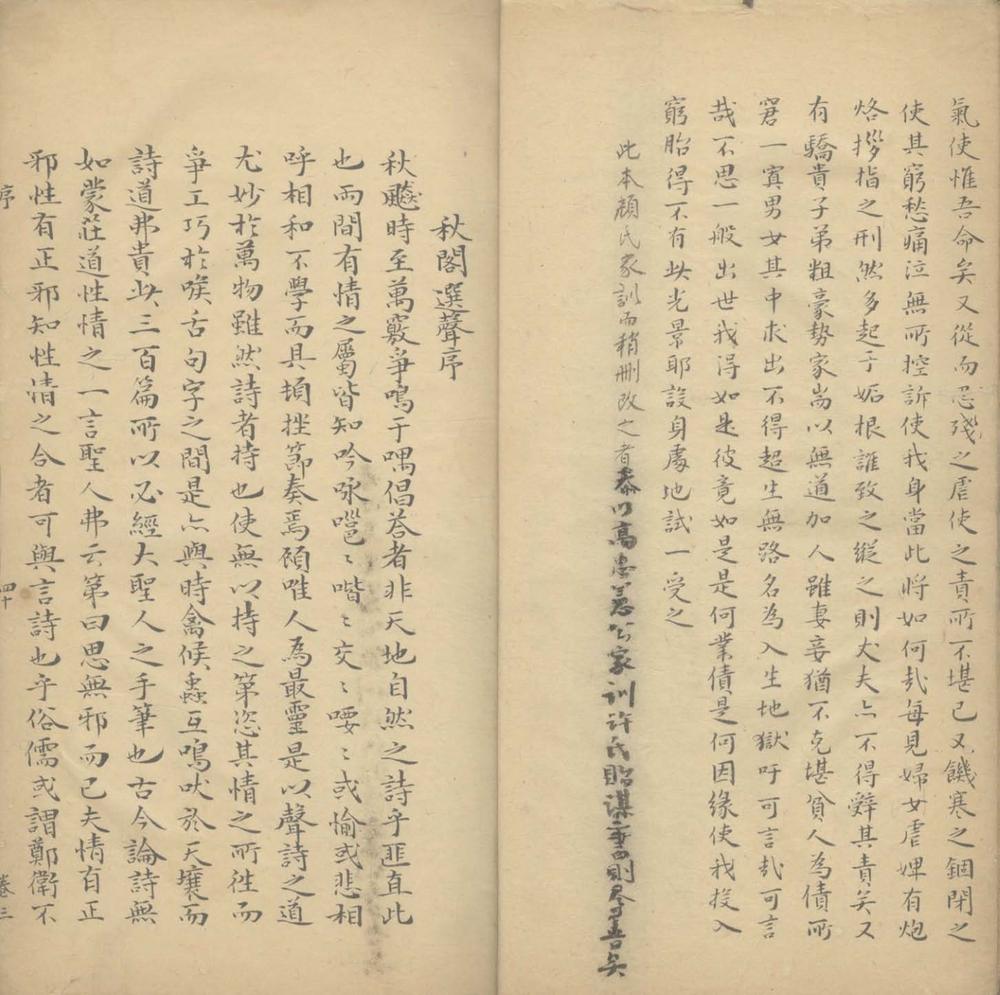 氣使惟吾命矣又從而忍殘之虐使之責所不堪已又饑寒之錮閉之
使其窮愁痛泣無所控訴使我身當此將如何哉每見婦女虐婢有炮
烙拶指之刑然多起于妬根誰致之縱之則丈夫亦不得辭其責矣又
有驕貴子弟粗豪勢家耑以無道加人雖妻妾猶不克堪貧人為債所
窘一寘男女其中求出不得超生無路名為入生地獄吁可言哉可言
哉不思一般出世我得如是彼竟如是是何業債是何因緣使我投入
窮胎得不有此光景耶設身處地試一受之
此本顏氏家訓而稍刪改之者泰以高忠憲公家訓許氏貽謀四則尽善矣
秋閣選聲序
秋飈時至萬竅爭鳴于喁倡荅者非天地自然之詩乎匪直此
也兩間有情之屬皆知吟咏嗈〻喈〻交〻喓〻或愉或悲相
呼相和不學而具頓挫節奏焉顧唯人為最靈是以聲詩之道
尤妙於萬物雖然詩者持也使無以持之第恣其情之所徃而
爭工巧於喉舌句字之間是亦與時禽候蟲互鳴吠於天壤而
詩道弗貴此三百篇所以必經大聖人之手筆也古今論詩無
如蒙莊道性情之一言聖人弗云第曰思無邪而已夫情有正
邪性有正邪知性情之合者可與言詩也乎俗儒或謂鄭衛不
序
四十
卷三